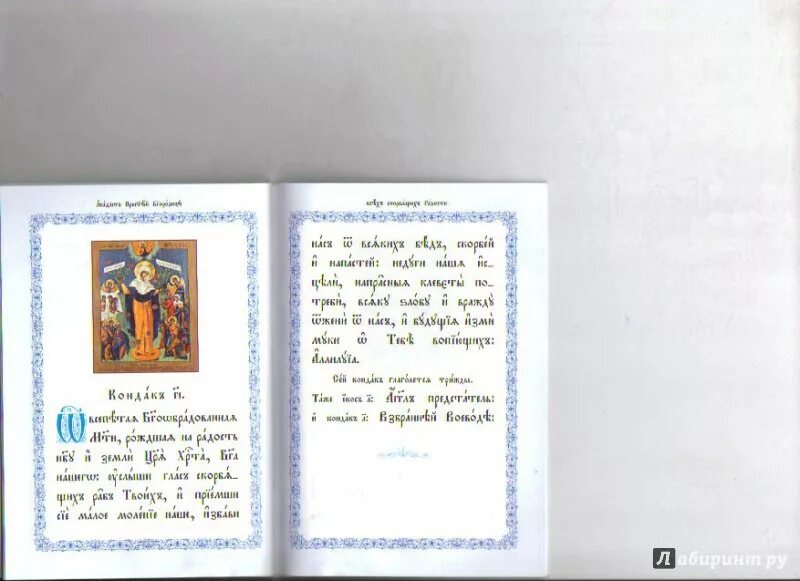 Ака́ѳистъ Прест҃ѣй Бг҃оро́дицѣ
Конда́къ г҃і.
Ѽ всепѣ́таѧ Бг҃ообра́дованнаѧ
Мт҃и, ро́ждшаѧ на ра́дость
нб҃ꙋ и҆ землѝ Цр҃ѧ̀ Хрⷭ҇та̀, Бг҃а
на́шегѡ: ᲂу҆слы́ши гла́съ скорбѧ́_
щихъ ра̑бъ Твои́хъ, и҆ прїе́мши
сїѐ ма́лое моле́нїе на́ше, и҆зба́ви
всѣ́хъ скорбѧ́щихъ Ра́дости
на́съ ѿ всѧ́кихъ бѣ́дъ, скорбе́й
и҆ напа́стей: недꙋ́ги на́шѧ и҆с_
цѣлѝ, напра̑сныѧ клевєты̀ по_
требѝ, всѧ́кꙋ ѕло́бꙋ и҆ враждꙋ̀
ѿженѝ ѿ на́съ, и҆ бꙋ́дꙋщїѧ и҆змѝ
мꙋ́ки ѡ҆ Тебѣ̀ вопїю́щихъ:
А҆ллилꙋ́їа.
Се́й конда́къ глаго́летсѧ три́жды.
Та́же і҆́косъ а҃: А҆́гг҃лъ предста́тель:
и҆ конда́къ а҃: Взбра́ннѣй Воево́дѣ:
Лабиринт.ру